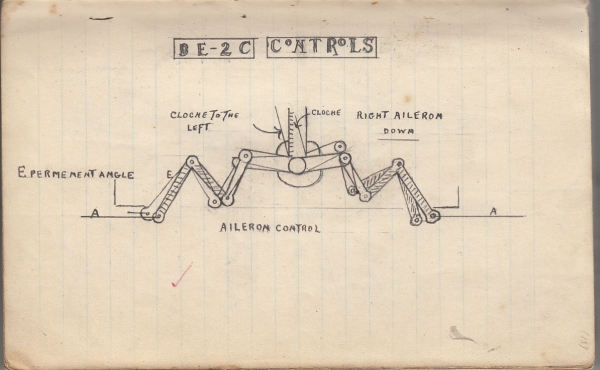 BE-2C CONTROLS
CLOCHE TO THE
LEFT
CLOCHE
RIGHT AILEROM
DOWN
EPERMEMENT ANGLE
E
A
A
AILEROM CONTROL